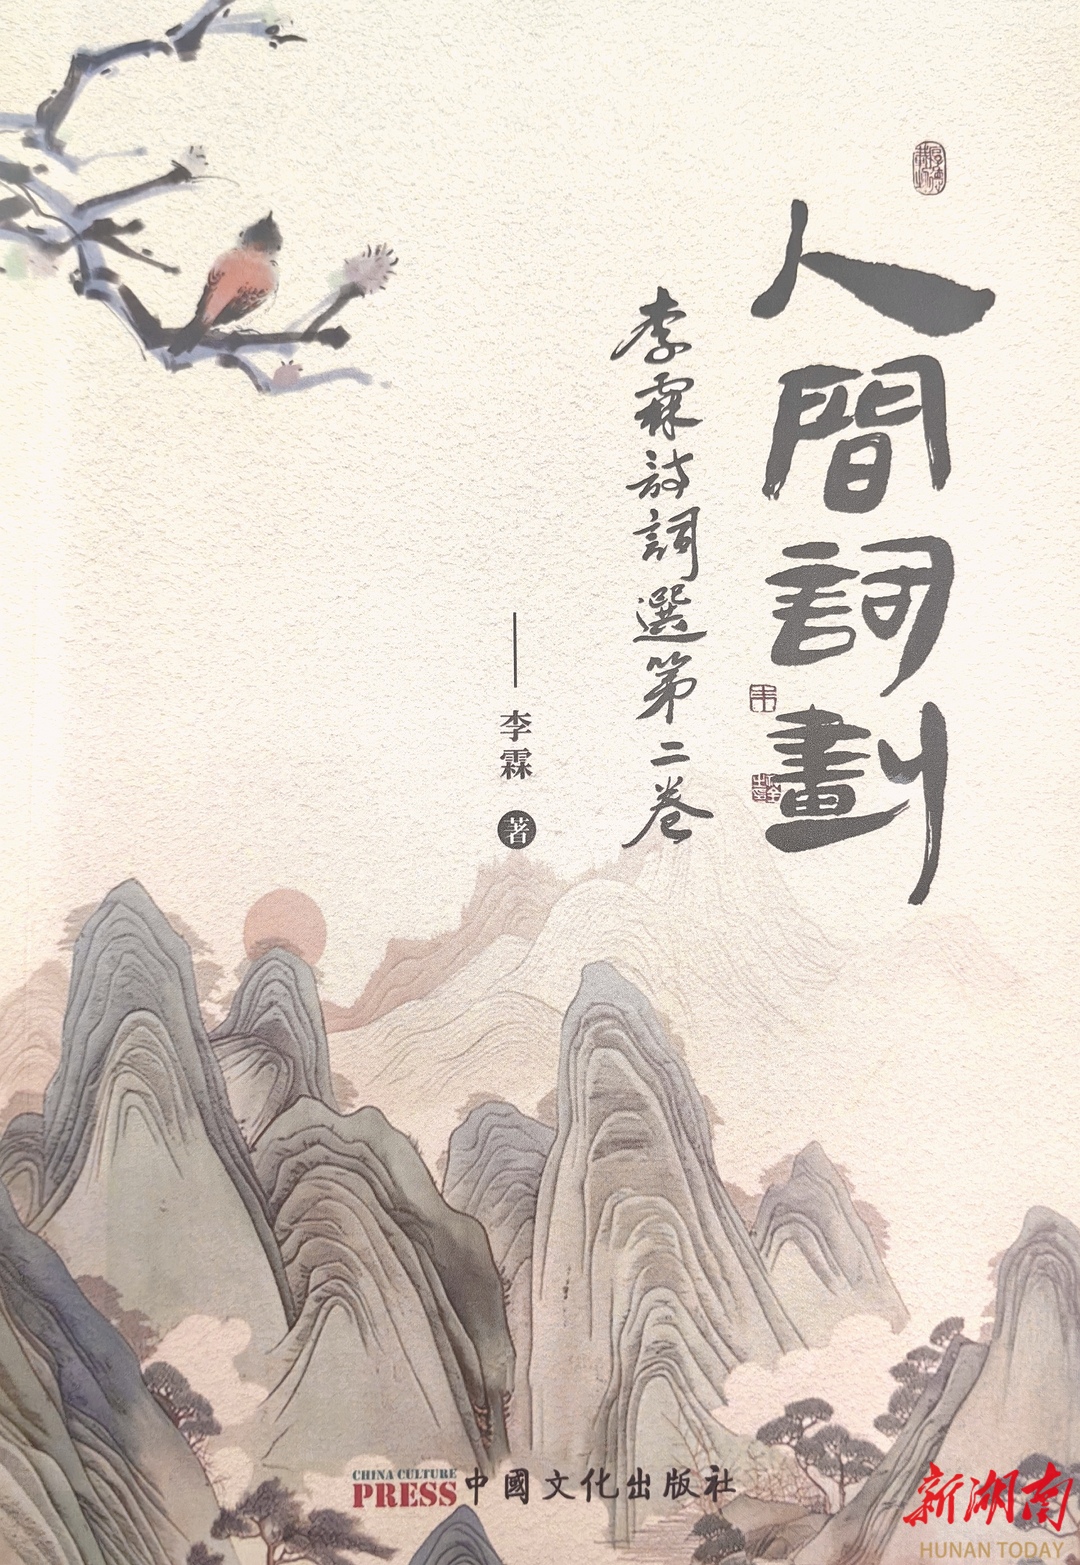 人間詞劃
李霖詩詞選第二卷
李霖 著
CHINA CULTURE
PRESS
中國文化出版社
新湖南
HUNAN TODAY